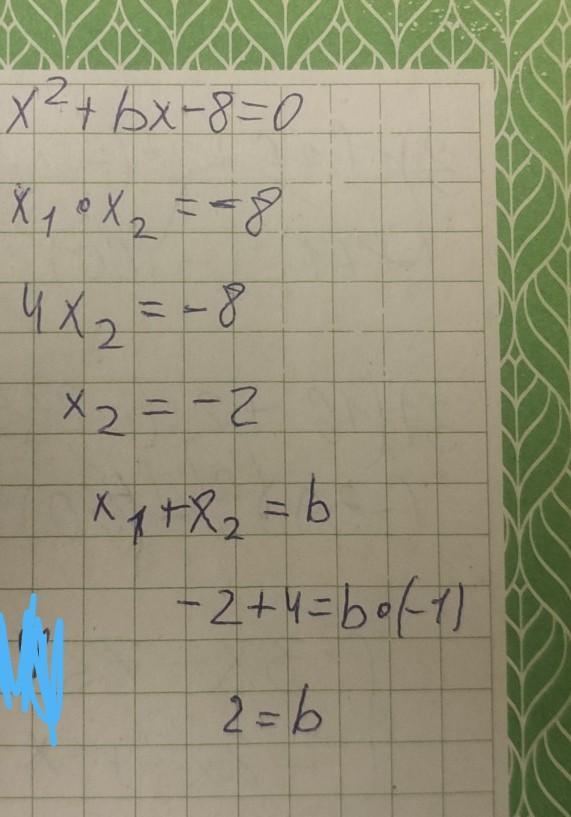 x² + bx - 8 = 0
x₁ • x₂ = -8
4x₂ = -8
x₂ = -2
x₁ + x₂ = b
-2 + 4 = b • (-1)
2 = b